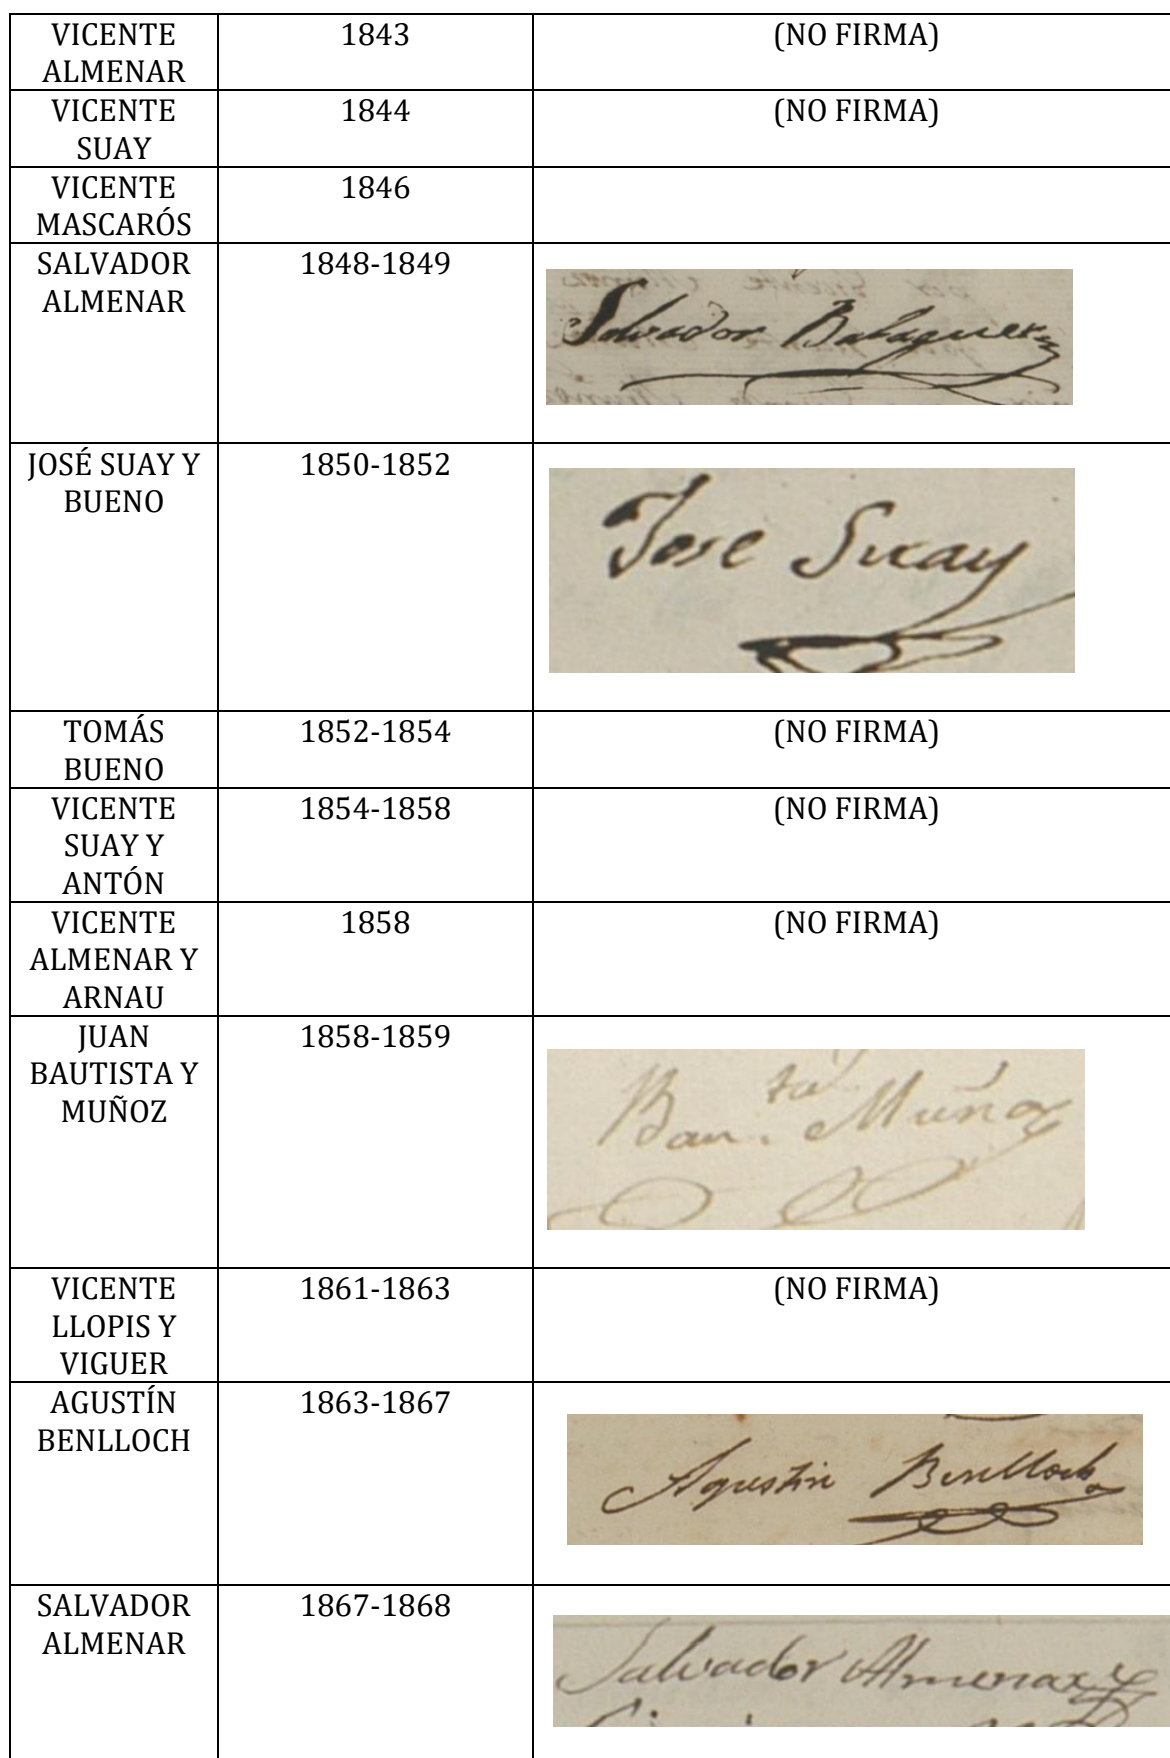 VICENTE
ALMENAR
1843
(NO FIRMA)
VICENTE
SUAY
1844
(NO FIRMA)
VICENTE
MASCARÓS
1846
SALVADOR
ALMENAR
1848-1849
Salvador Balaguer
JOSÉ SUAY Y
BUENO
1850-1852
Jose Suay
TOMÁS
BUENO
1852-1854
(NO FIRMA)
VICENTE
SUAY Y
ANTÓN
1854-1858
(NO FIRMA)
VICENTE
ALMENAR Y
ARNAU
1858
(NO FIRMA)
JUAN
BAUTISTA Y
MUÑOZ
1858-1859
Bau.ta Muñoz
VICENTE
LLOPIS Y
VIGUER
1861-1863
(NO FIRMA)
AGUSTÍN
BENLLOCH
1863-1867
Agustin Benlloch
SALVADOR
ALMENAR
1867-1868
Salvador Almenar